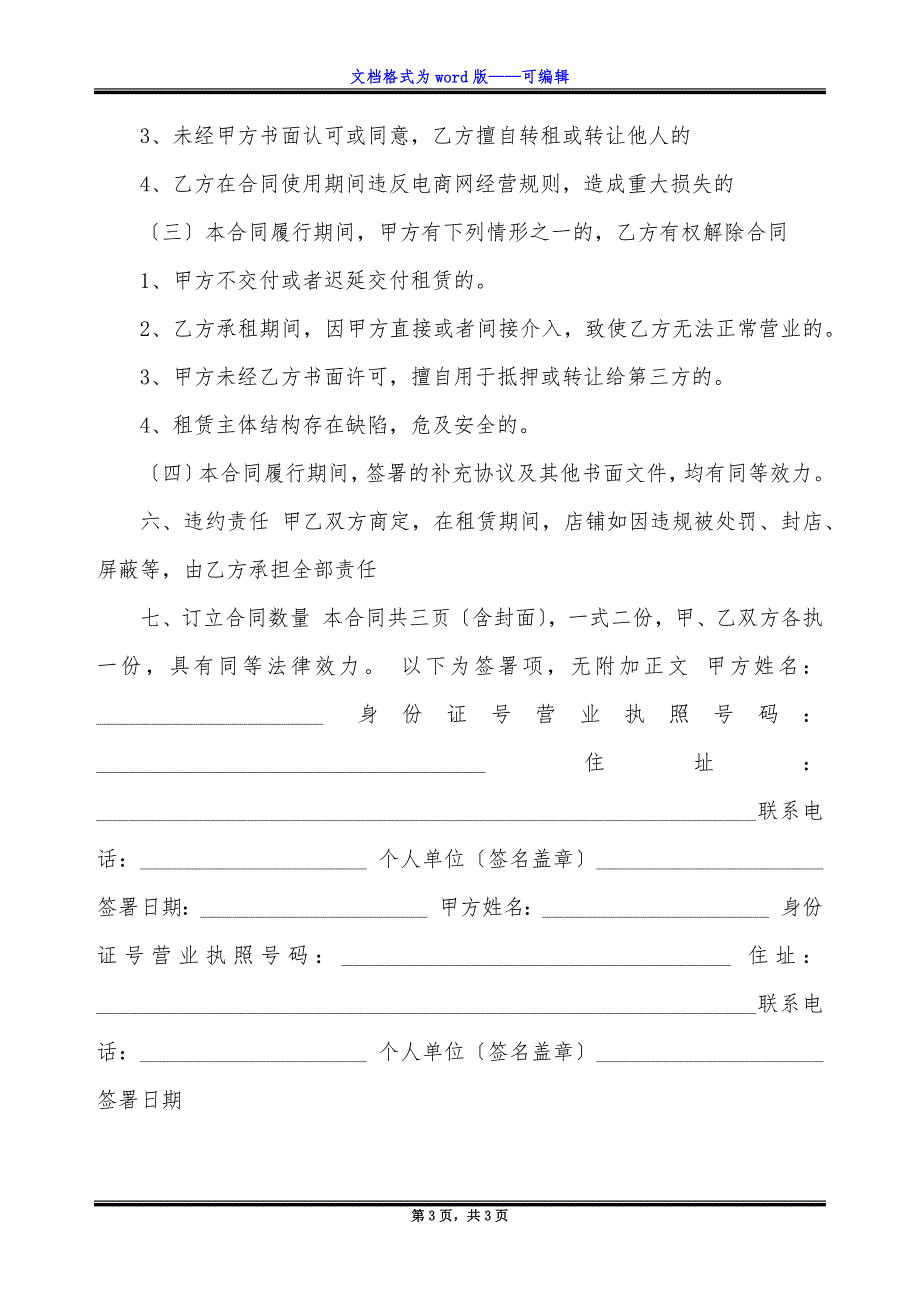 文档格式为 word 版——可编辑
3、未经甲方书面认可或同意，乙方擅自转租或转让他人的
4、乙方在合同使用期间违反电商网经营规则，造成重大损失的
〔三〕本合同履行期间，甲方有下列情形之一的，乙方有权解除合同
1、甲方不交付或者迟延交付租赁的。
2、乙方承租期间，因甲方直接或者间接介入，致使乙方无法正常营业的。
3、甲方未经乙方书面许可，擅自用于抵押或转让给第三方的。
4、租赁主体结构存在缺陷，危及安全的。
〔四〕本合同履行期间，签署的补充协议及其他书面文件，均有同等效力。
六、违约责任 甲乙双方商定，在租赁期间，店铺如因违规被处罚、封店、
屏蔽等，由乙方承担全部责任
七、订立合同数量 本合同共三页〔含封面〕，一式二份，甲、乙双方各执
一份，具有同等法律效力。 以下为签署项，无附加正文 甲方姓名：
_____________________ 身份证号营业执照号码：
____________________________________ 住址：
_____________________________________________________________联系电
话：_____________________ 个人单位〔签名盖章〕_____________________
签署日期：_____________________ 甲方姓名：_____________________ 身份
证号营业执照号码：____________________________________ 住址：
_____________________________________________________________联系电
话：_____________________ 个人单位〔签名盖章〕_____________________
签署日期
第 3 页，共 3 页